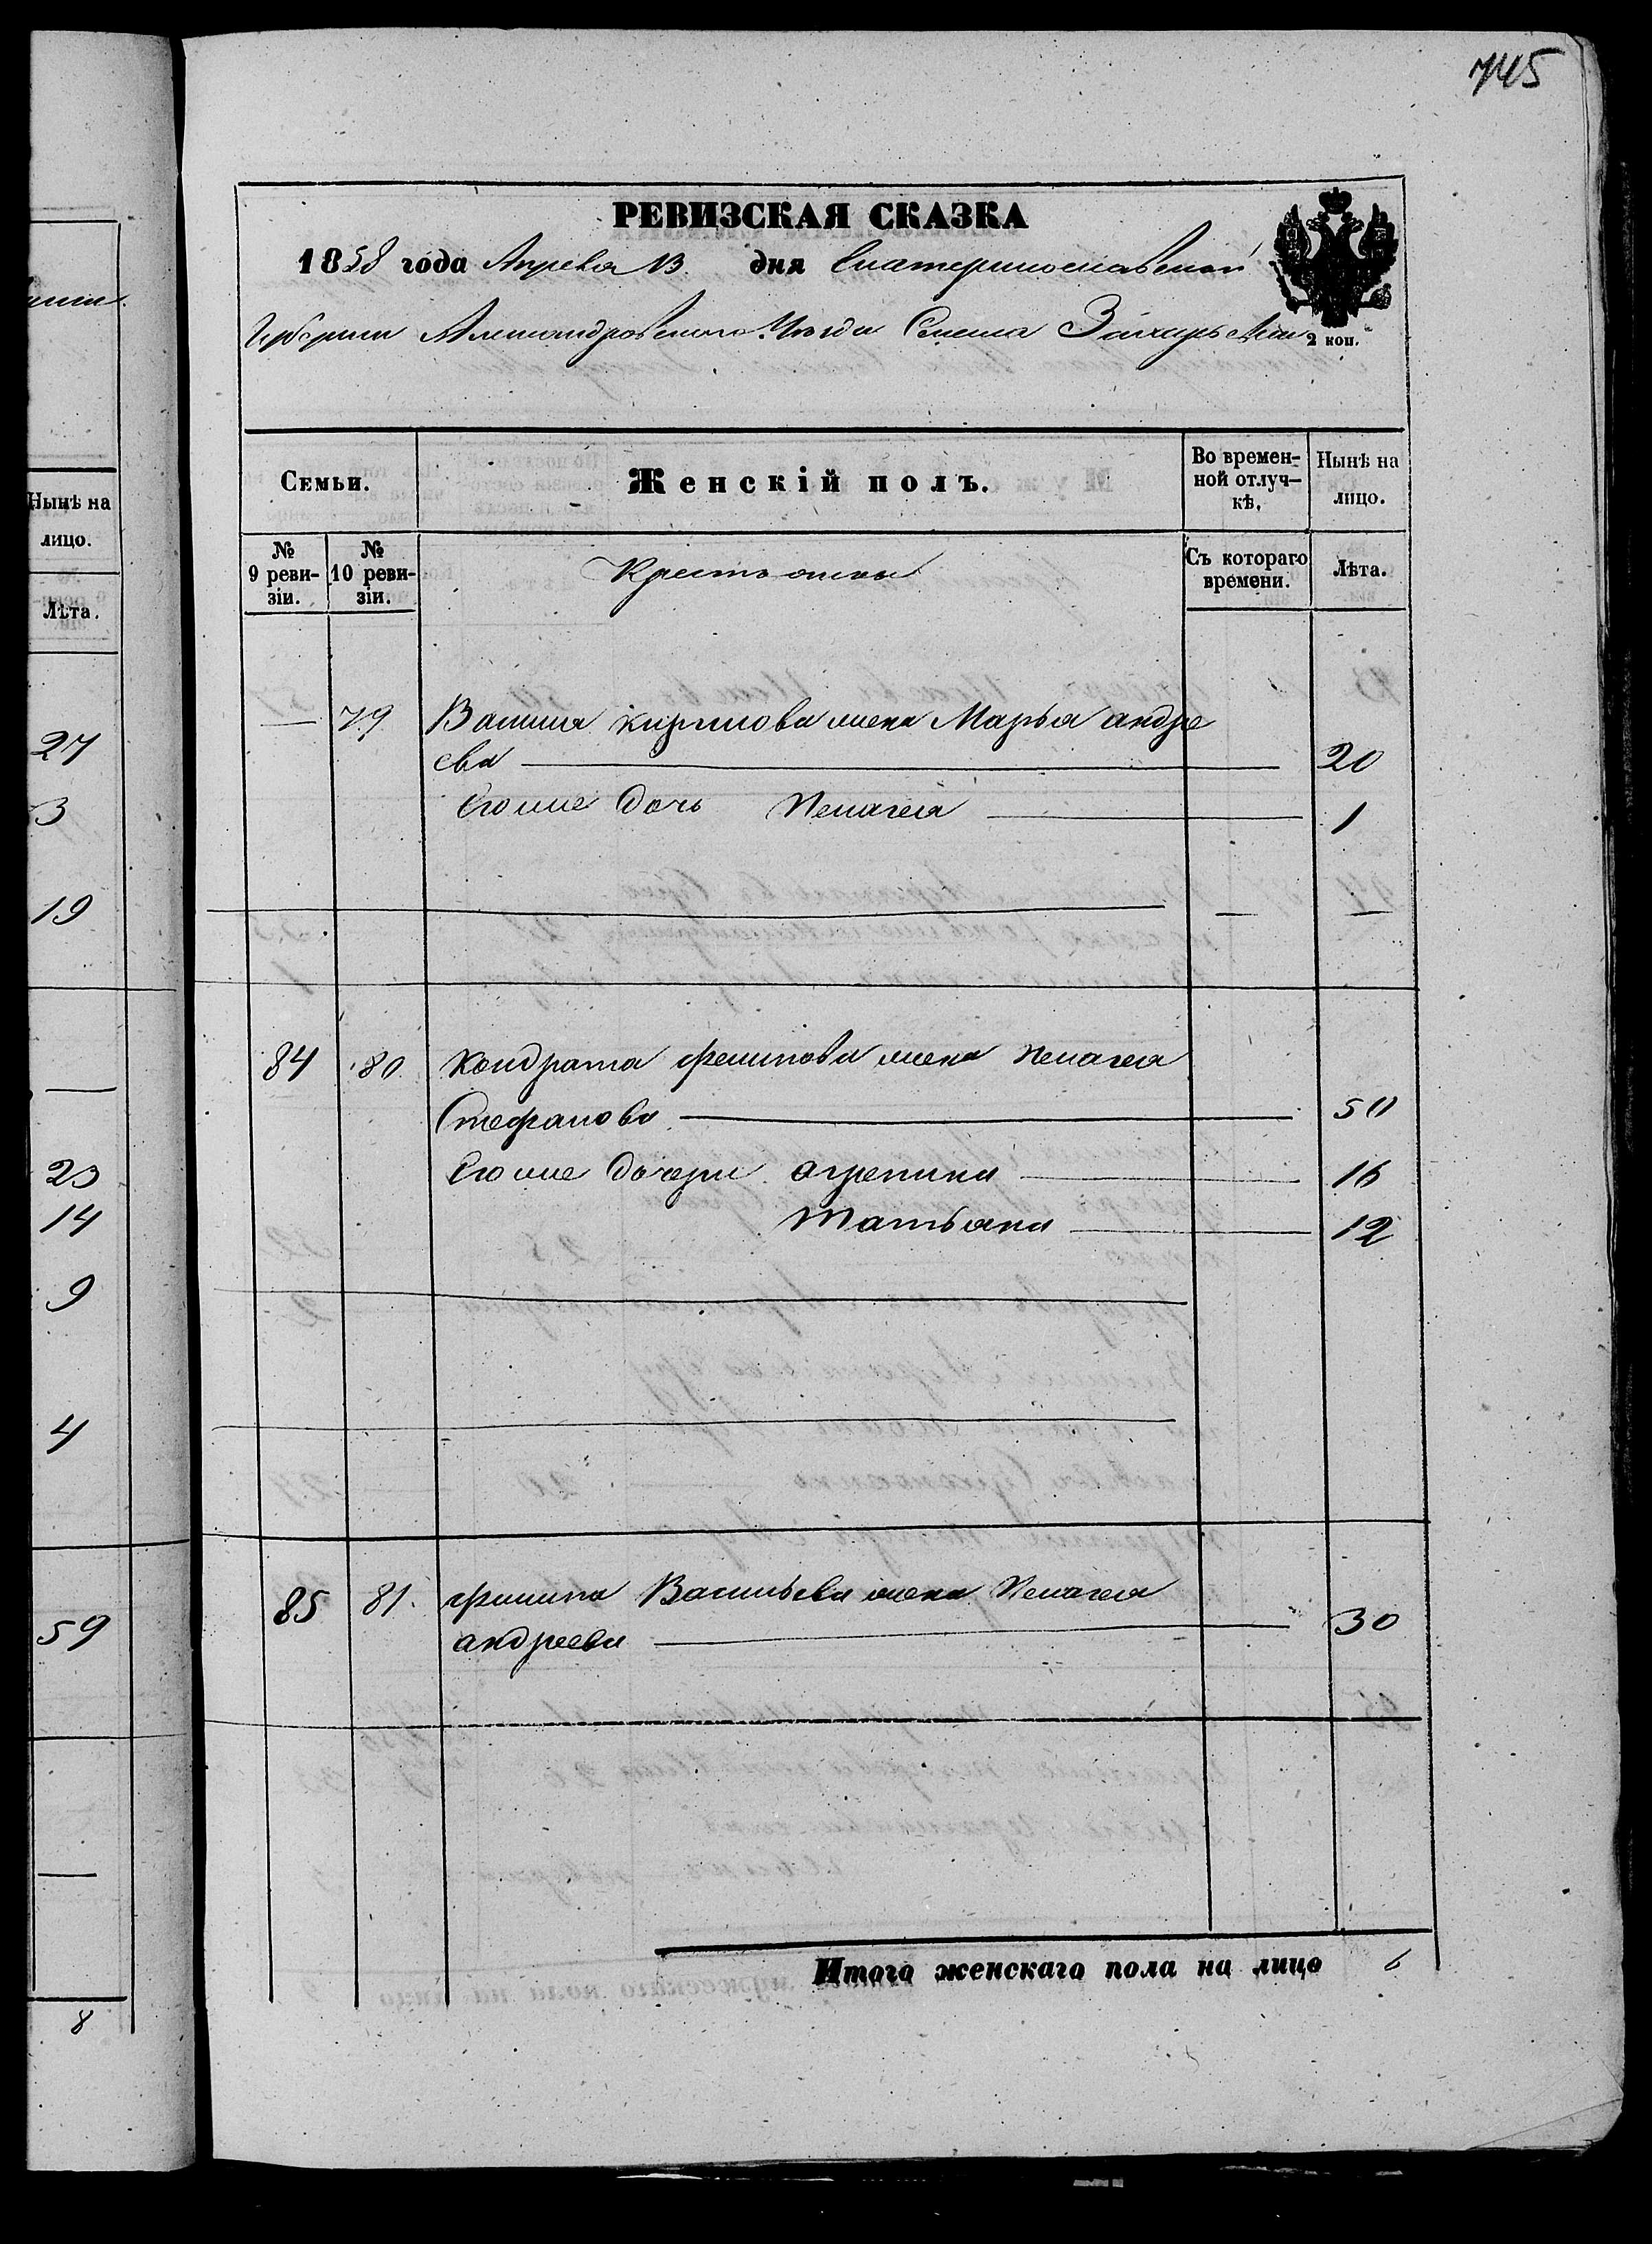 745
РЕВИЗСКАЯ СКАЗКА
1858 года Апреля 13. дня Екатеринославской
Губернии Александровского Уезда Селения Захарьевки
2 коп.
Семьи.
Женскій полъ.
Во времен-
ной отлуч-
кѣ.
Нынѣ на
лицо.
№
9 реви-
зіи.
№
10 реви-
зіи.
Крестьянки
Съ котораго
времени.
Лѣта.
— 79 Василия Кирилова жена Марья андре
ева 20
Его же дочь Пелагея 1
84 80 Кондрата филипова жена Пелагея
Стефанова 50
Его же дочери агрепина 16
Татьяна 12
85 81. филипа Васильева жена Пелагея
андреева 30
Итого женскаго пола на лицо 6
Нынѣ на
лицо.
Лѣта.
27
3
19
23
14
9
4
59
8